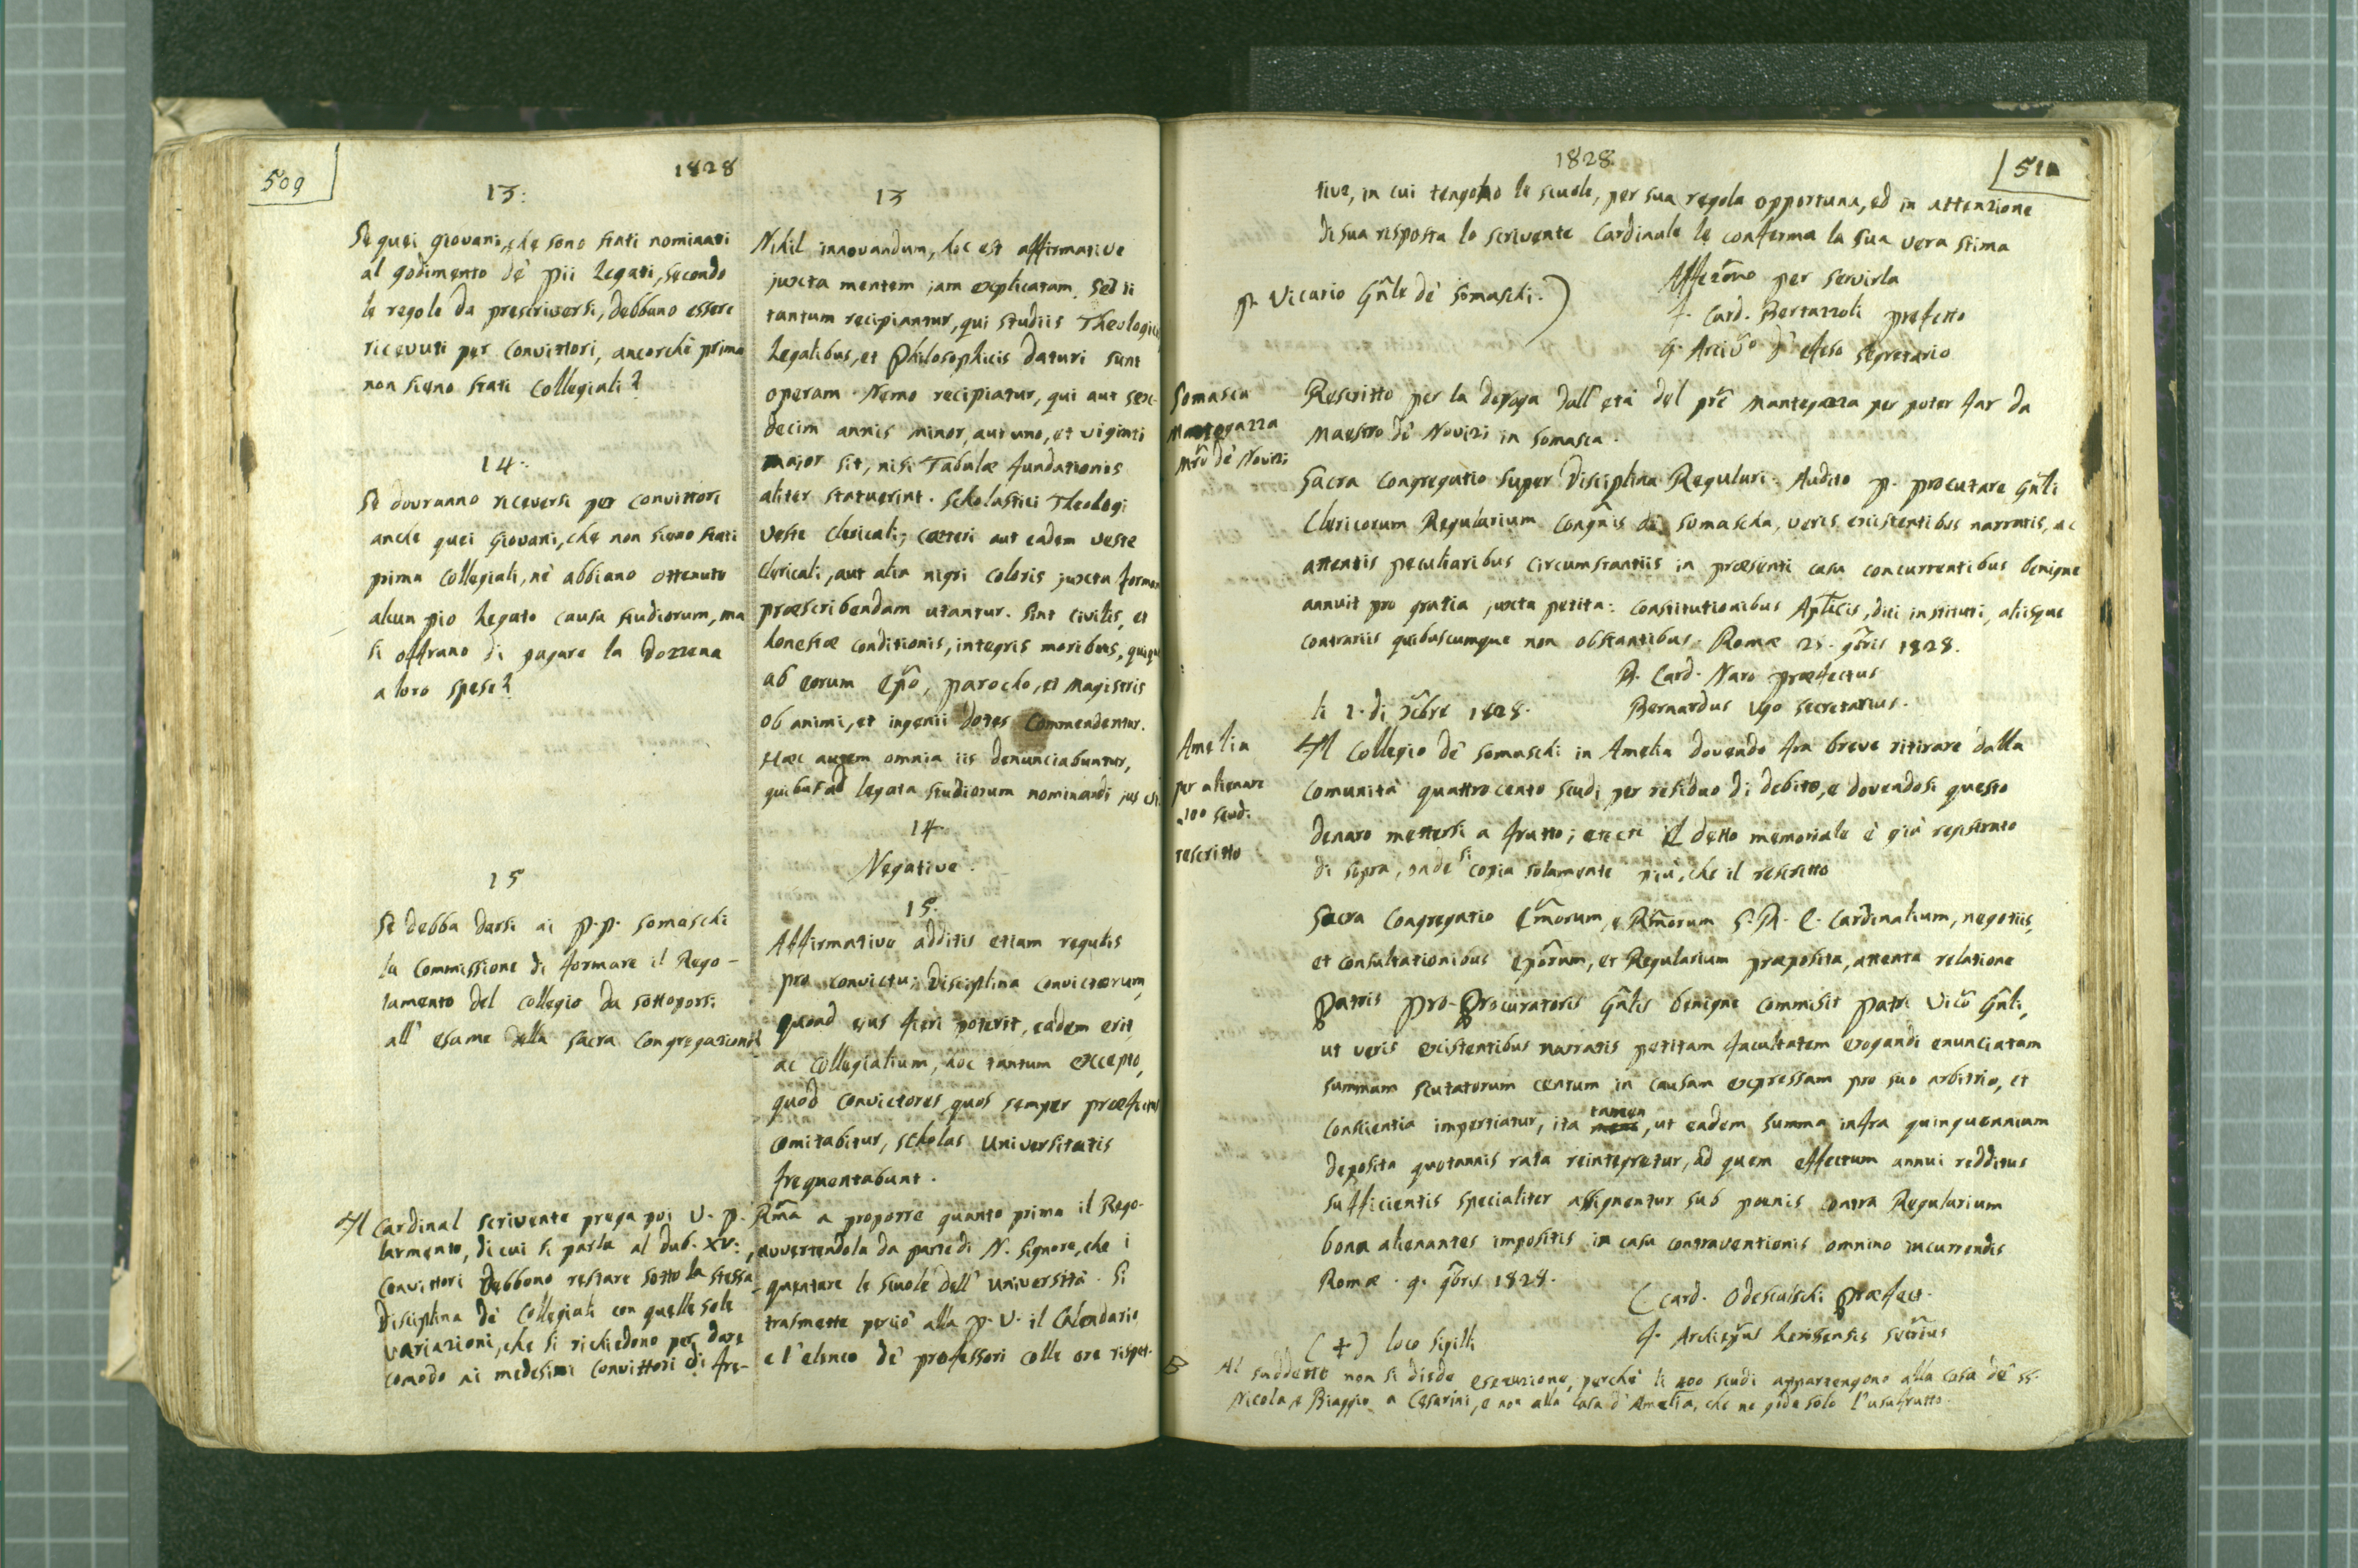 509
1828
13:
Se quei giovani, che sono stati nominati
al godimento de' pii Legati, secondo
le regole da prescriversi, debbano essere
ricevuti per convittori, ancorchè prima
non sieno stati Collegiali?
14:
Se dovranno riceversi per convittori
anche quei giovani, che non sieno stati
prima Collegiali, nè abbiano ottenuto
alcun pio Legato causa studiorum, ma
si offrano di pagare la Dozzena
a loro spese?
15
Se debba darsi ai P.P. Somaschi
la Commissione di formare il Rego-
lamento del Collegio da sottoporsi
all' esame della Sacra Congregazione
13
Nihil innovandum, hoc est affirmative
juxta mentem jam explicatam. Sed ii
tantum recipiantur, qui studiis Theologicis
Legalibus, et Philosophicis daturi sunt
operam. Nemo recipiatur, qui aut sex-
decim annis minor, aut uno, et viginti
major sit, nisi Tabulæ fundationis
aliter statuerint. Scholastici Theologi
veste clericali; cæteri aut eadem veste
clericali, aut alia nigri coloris juxta formam
præscribendam utantur. Sint civilis, et
honestæ conditionis, integris moribus, quique
ab eorum Epo, parocho, et Magistris
ob animi, et ingenii dotes commendentur.
Hæc autem omnia iis denunciabuntur,
quibus ad legata studiorum nominandi jus est.
14
Negative.
15.
Affirmative additis etiam regulis
pro convictu; Disciplina convictorum,
quoad ejus fieri poterit, eadem erit,
ac Collegialium, hoc tantum excepto,
quod convictores quos semper præfectus
comitabitur, scholas Universitatis
frequentabunt.
Il Cardinal scrivente prega poi V. P. Rma a proporre quanto prima il Rego-
larmento, di cui si parla al dub. XV:, avvertendola da parte di N. Signore, che i
convittori debbono restare sotto la stessa
disciplina de' Collegiali con quelle sole
variazioni, che si richiedono per dare
comodo ai medesimi convittori di fre-
quentare le scuole dell' Università. Si
trasmette perciò alla P. V. il Calendario
e l' elenco de' professori colle ore rispet-
1828
510
tive, in cui tengono le scuole, per sua regola opportuna, ed in attenzione
di sua risposta lo scrivente Cardinale le conferma la sua vera stima
Affezmo per servirla
P. Vicario Gnle de' Somaschi.)
F. Card. Bertazzoli prefetto
G. Arcivo d' Efeso segretario
Somasca
Mantegazza
Mro de' Novizi
Rescritto per la deroga dall' età del pre Mantegazza per poter far da
Maestro de' Novizi in Somasca.
Sacra Congregatio super Disciplina Regulari. Audito P. procutare Gnli
Clericorum Regularium Congnis de Somascha, veris existentibus narratis, ac
attentis peculiaribus circumstantiis in præsenti casu concurrentibus benigne
annuit pro gratia juxta petita: Constitutionibus Aplicis, dici instituti, aliisque
contrariis quibuscumque non obstantibus. Romæ 25. 9bris 1828.
B. Card. Naro præfectus
Bernardus Ugo secretarius.
li 2. di Xbre 1828.
Amelia
per alienare
100 scudi
rescritto
Il Collegio de' Somaschi in Amelia dovendo fra breve ritirare dalla
Comunità quattrocento scudi per residuo di debito, e dovendosi questo
denaro mettersi a frutto; etceti Il detto memoriale è già registrato
di sopra, onde si copia solamente più, che il rescritto
Sacra Congregatio Emorum, e Rmorum S. R. E. Cardinalium, negotiis,
et consultationibus eporum, et Regularium præposita, attenta relatione
Patris Pro-Procuratoris Gnlis benigne commisit patri Vico Gnli,
ut veris existentibus narratis petitam facultatem erogandi enunciatam
summam scutatorum centum in causam expressam pro suo arbitrio, et
conscientia impertiatur, ita tamen, ut eadem summa infra quinquennium
deposita quotannis rata reintegretur, ad quem effectum annui redditus
sufficientis specialiter assignentur sub pœnis contra Regularium
bona alienantes impositis in casu contraventionis omnino incurrendis
Romæ. 9. 9bris 1828.
C. Card. Odescalchi Præfect.
(+) loco Sigilli
B Al suddetto non si diede esecuzione, perchè li 400 scudi appartengono alla casa de' SS.
Nicola, e Biaggio a Cesarini, e non alla casa d' Amelia, che ne gode solo l' usufrutto.